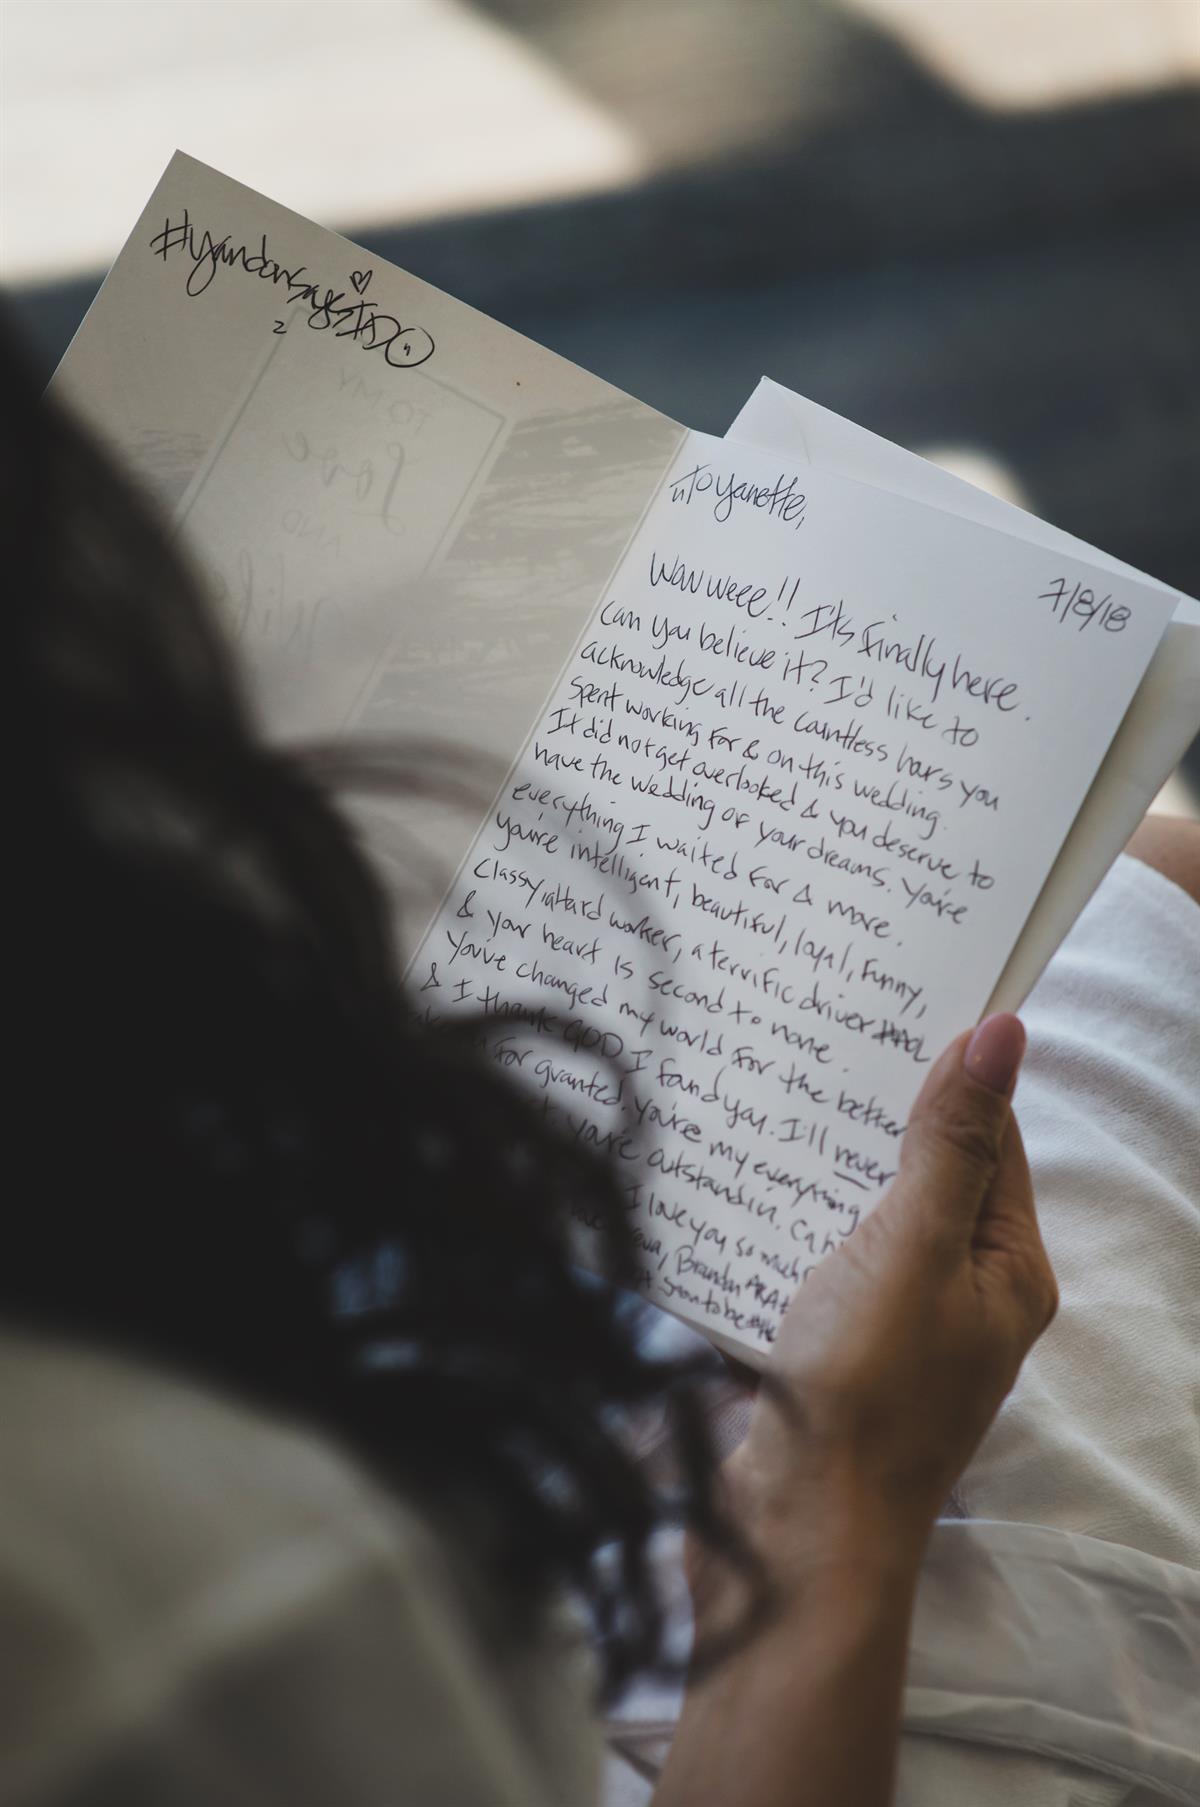 #yandonsaysIDO
2
TO MY
Love
AND
Wife
To Yanette,
7/8/18
Wow weee!! It's finally here.
Can you believe it? I'd like to
acknowledge all the countless hours you
spent working for & on this wedding.
It did not get overlooked & you deserve to
have the wedding of your dreams. You're
everything I waited for & more.
You're intelligent, beautiful, loyal, funny,
classy, hard worker, a terrific driver
& your heart is second to none.
You've changed my world for the better
& I thank GOD I found you. I'll never
for granted. You're my everything
you're outstandin.
I love you so much
Brandon
soon to be